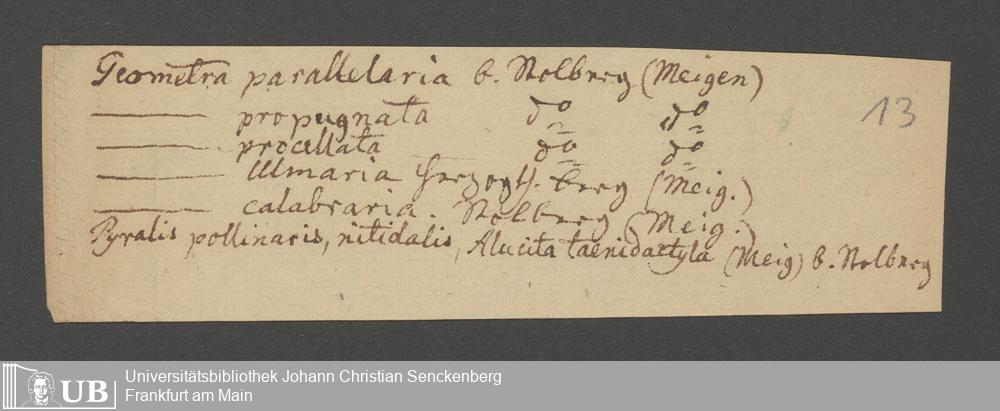 Geometra parallelaria b. Stolberg (Meigen)
——— propugnata do do
——— procellata do do
——— Ulmaria Herzogth. Berg (Meig.)
——— calabraria. Stolberg (Meig.)
Pyralis pollinaris, nitidalis, Alucita taenidactyla (Meig) b. Stolberg
13
UB
Universitätsbibliothek Johann Christian Senckenberg
Frankfurt am Main